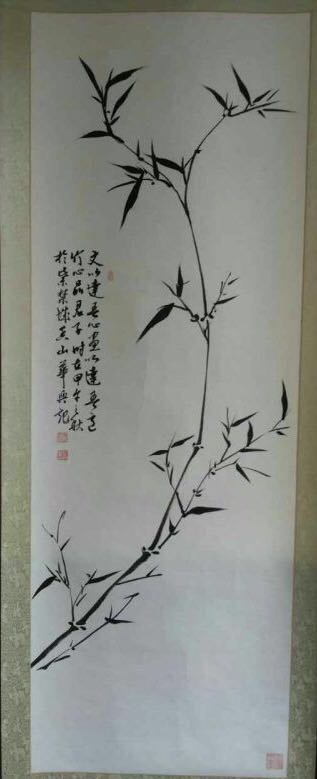 文以達吾心畫以達吾意
竹心品君子時在甲午之秋
於紫禁城山華興記